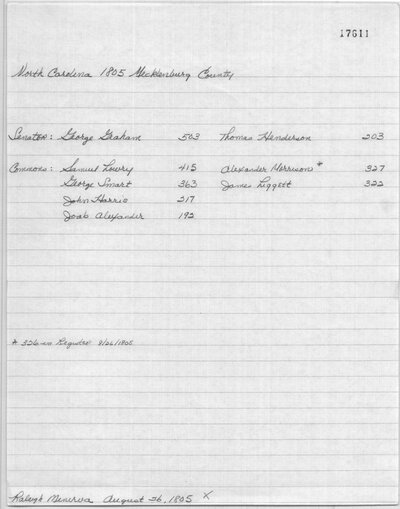 17G11
North Carolina 1805 Mecklenburg County
Senator: George Graham 503 Thomas Henderson 203
Commons: Samuel Lowry 415 Alexander Morrison * 327
George Smart 363 James Liggett 322
John Harris 217
Joab Alexander 192
* 326 in Register 9/26/1805
Raleigh Minerva. August 26, 1805 X